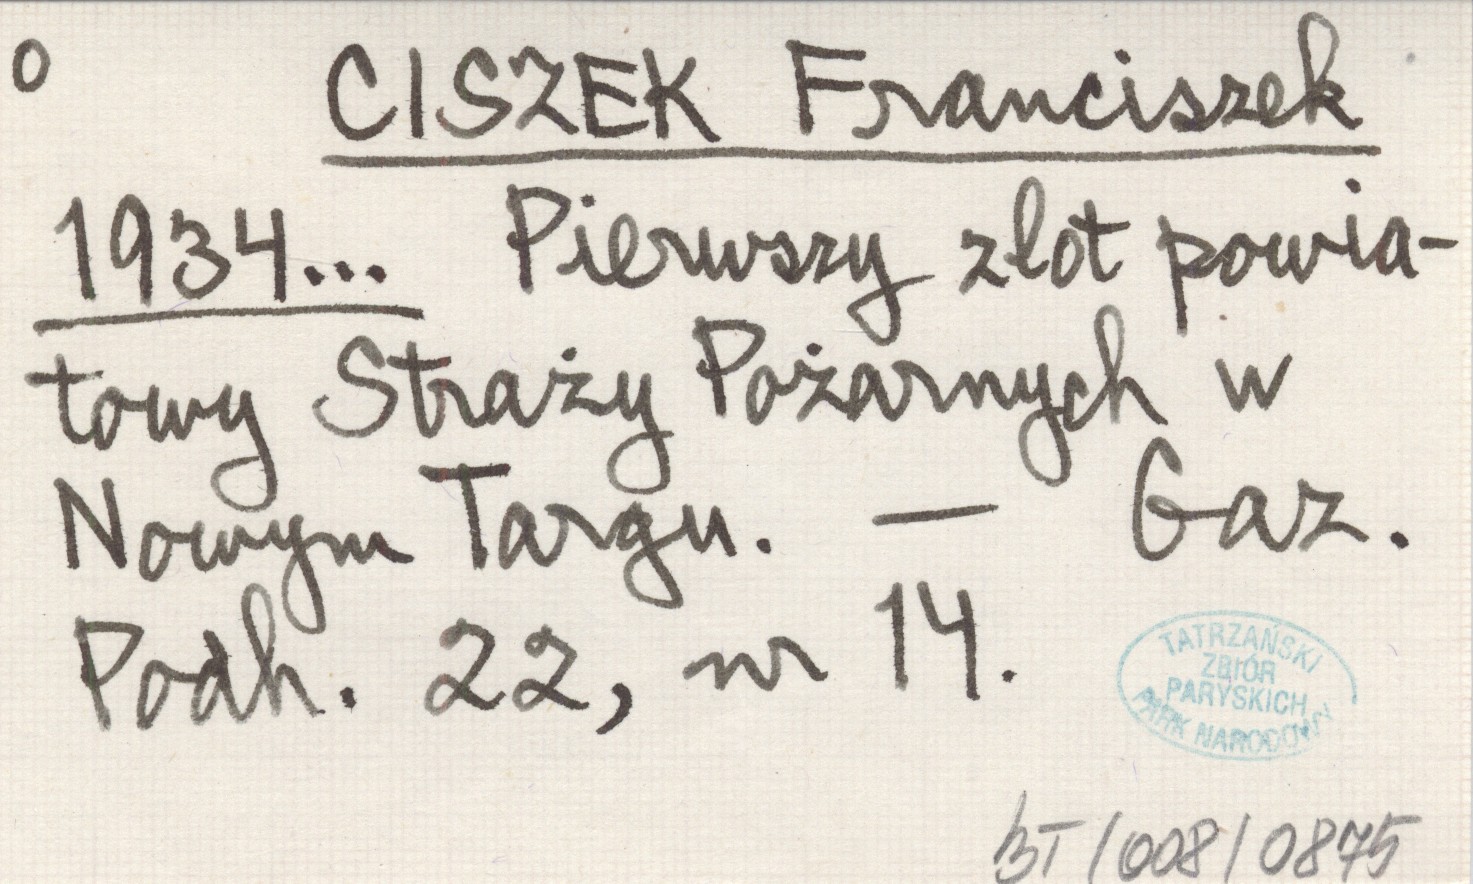 o CISZEK Franciszek
1934... Pierwszy zlot powia-
towy Straży Pożarnych w
Nowym Targu. — Gaz.
Podh. 22, nr 14.
TATRZAŃSKI
ZBIÓR
PARYSKICH
PARK NARODOWY
BT/008/0875